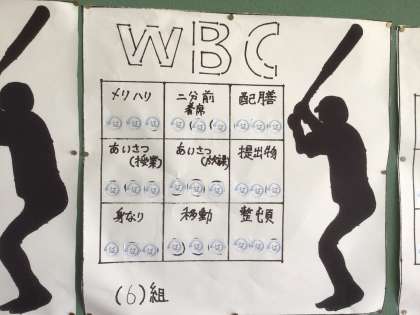 WBC
メリハリ
二分前
着席
配膳
あいさつ
(授業)
あいさつ
(放課)
提出物
身なり
移動
整頓
(6)組